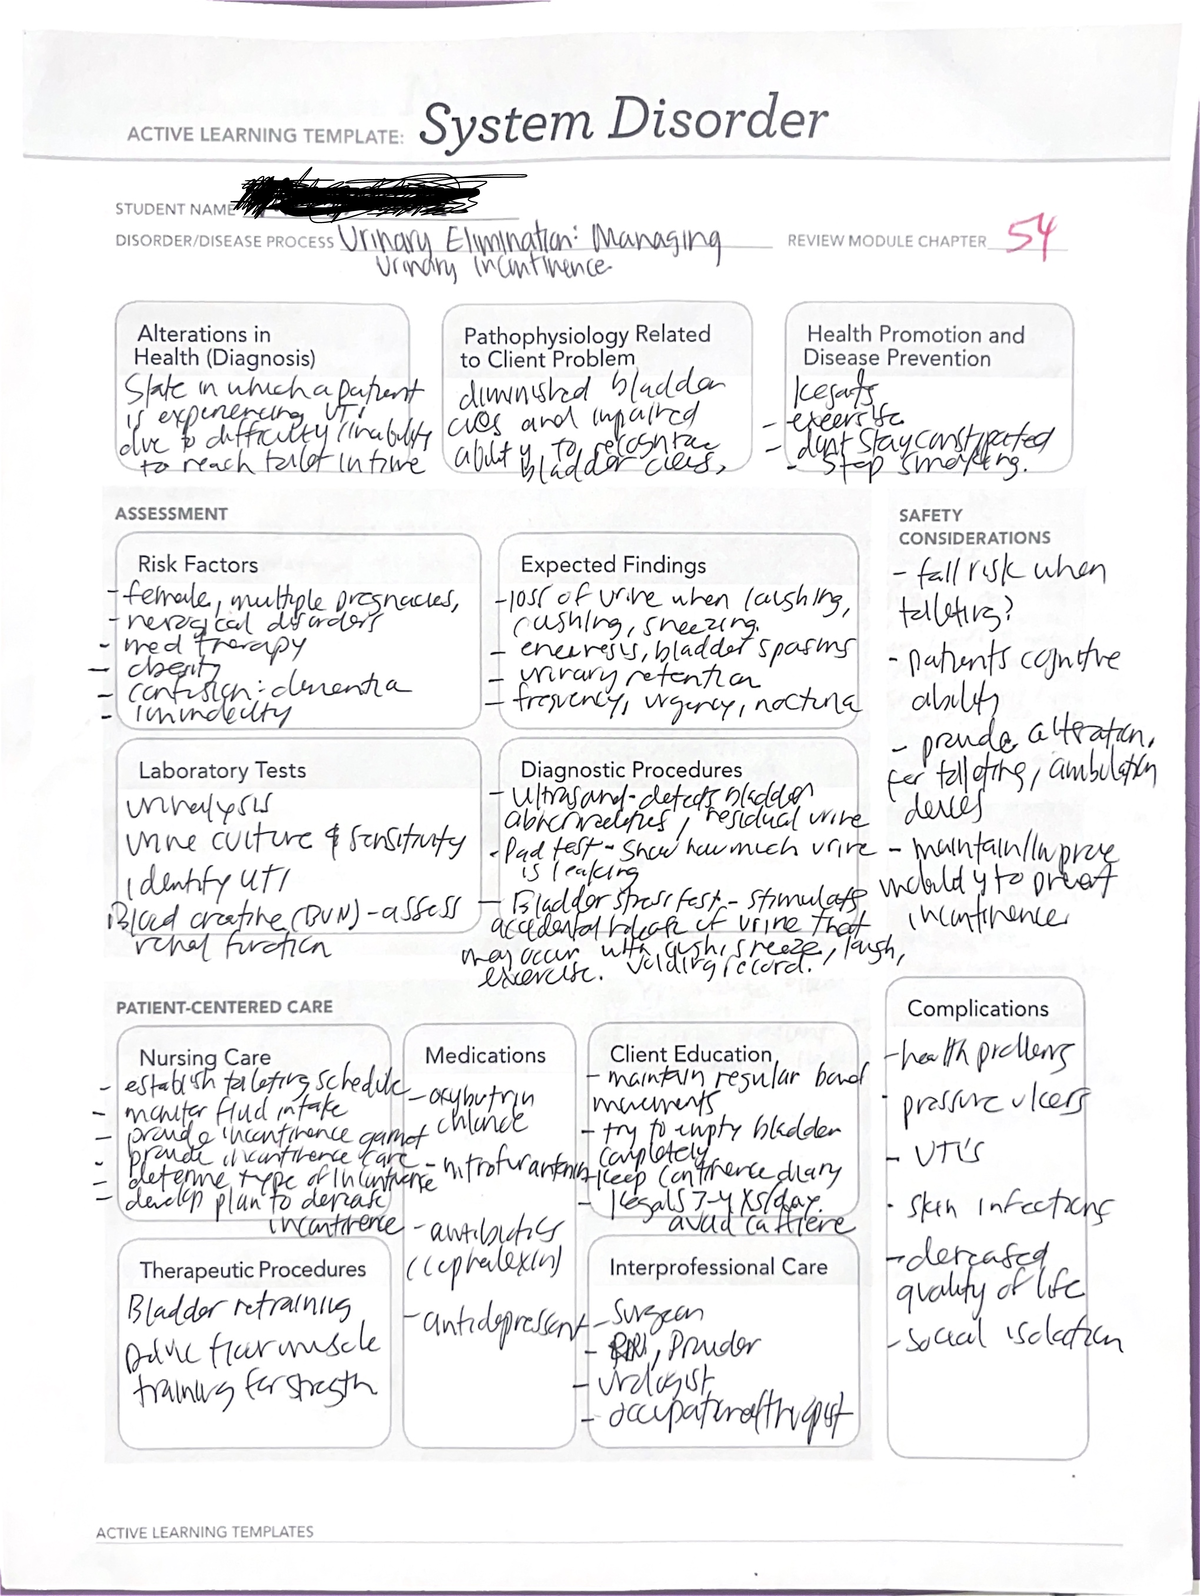 ACTIVE LEARNING TEMPLATE: System Disorder
STUDENT NAME
DISORDER/DISEASE PROCESS Urinary Elimination: Managing
Urinary incontinence
REVIEW MODULE CHAPTER 54
Alterations in
Health (Diagnosis)
State in which a patient
is experiencing UTI
due to difficulty/inability
to reach toilet in time
Pathophysiology Related
to Client Problem
diminished bladder
cues and impaired
ability to recognize
bladder cues,
Health Promotion and
Disease Prevention
- exercise
- dont stay constipated
- stop smoking.
ASSESSMENT
Risk Factors
- female, multiple pregnacies,
disorders
- med therapy
- obesity
- confusion: dementia
Expected Findings
- loss of urine when laughing,
sneezing.
bladder spasms
- urinary retention
- frequency, urgency,
SAFETY
CONSIDERATIONS
- fall risk when
toileting?
- patients cognitive
ability
for toileting, ambulation
- maintain/improve
mobility to prevent
incontinence
Laboratory Tests
urinalysis
urine culture & sensitivity
identify UTI
Blood (BUN) - assess
renal function
Diagnostic Procedures
- Ultrasound - detects bladder
residual urine
- Pad test - show how much urine
is leaking
- Bladder stress test -
accidental of urine that
may occur with sneeze, laugh,
exercise. voiding record.
PATIENT-CENTERED CARE
Nursing Care
- establish toileting schedule
- monitor fluid intake
- provide incontinence
- provide incontinence care
- determine type of
- develop plan to
incontinence
Medications
- nitrofurantoin
- antibiotics
(cephalexin)
Client Education
- maintain regular bowel
movements
- try to empty bladder
completely
- keep continence diary
- kegals 3-4 xs/day.
Complications
- health problems
- pressure ulcers
- UTI's
- skin infections
- decreased
quality of life
- social isolation
Therapeutic Procedures
Bladder retraining
training for strength
Interprofessional Care
- surgeon
Provider
- urologist